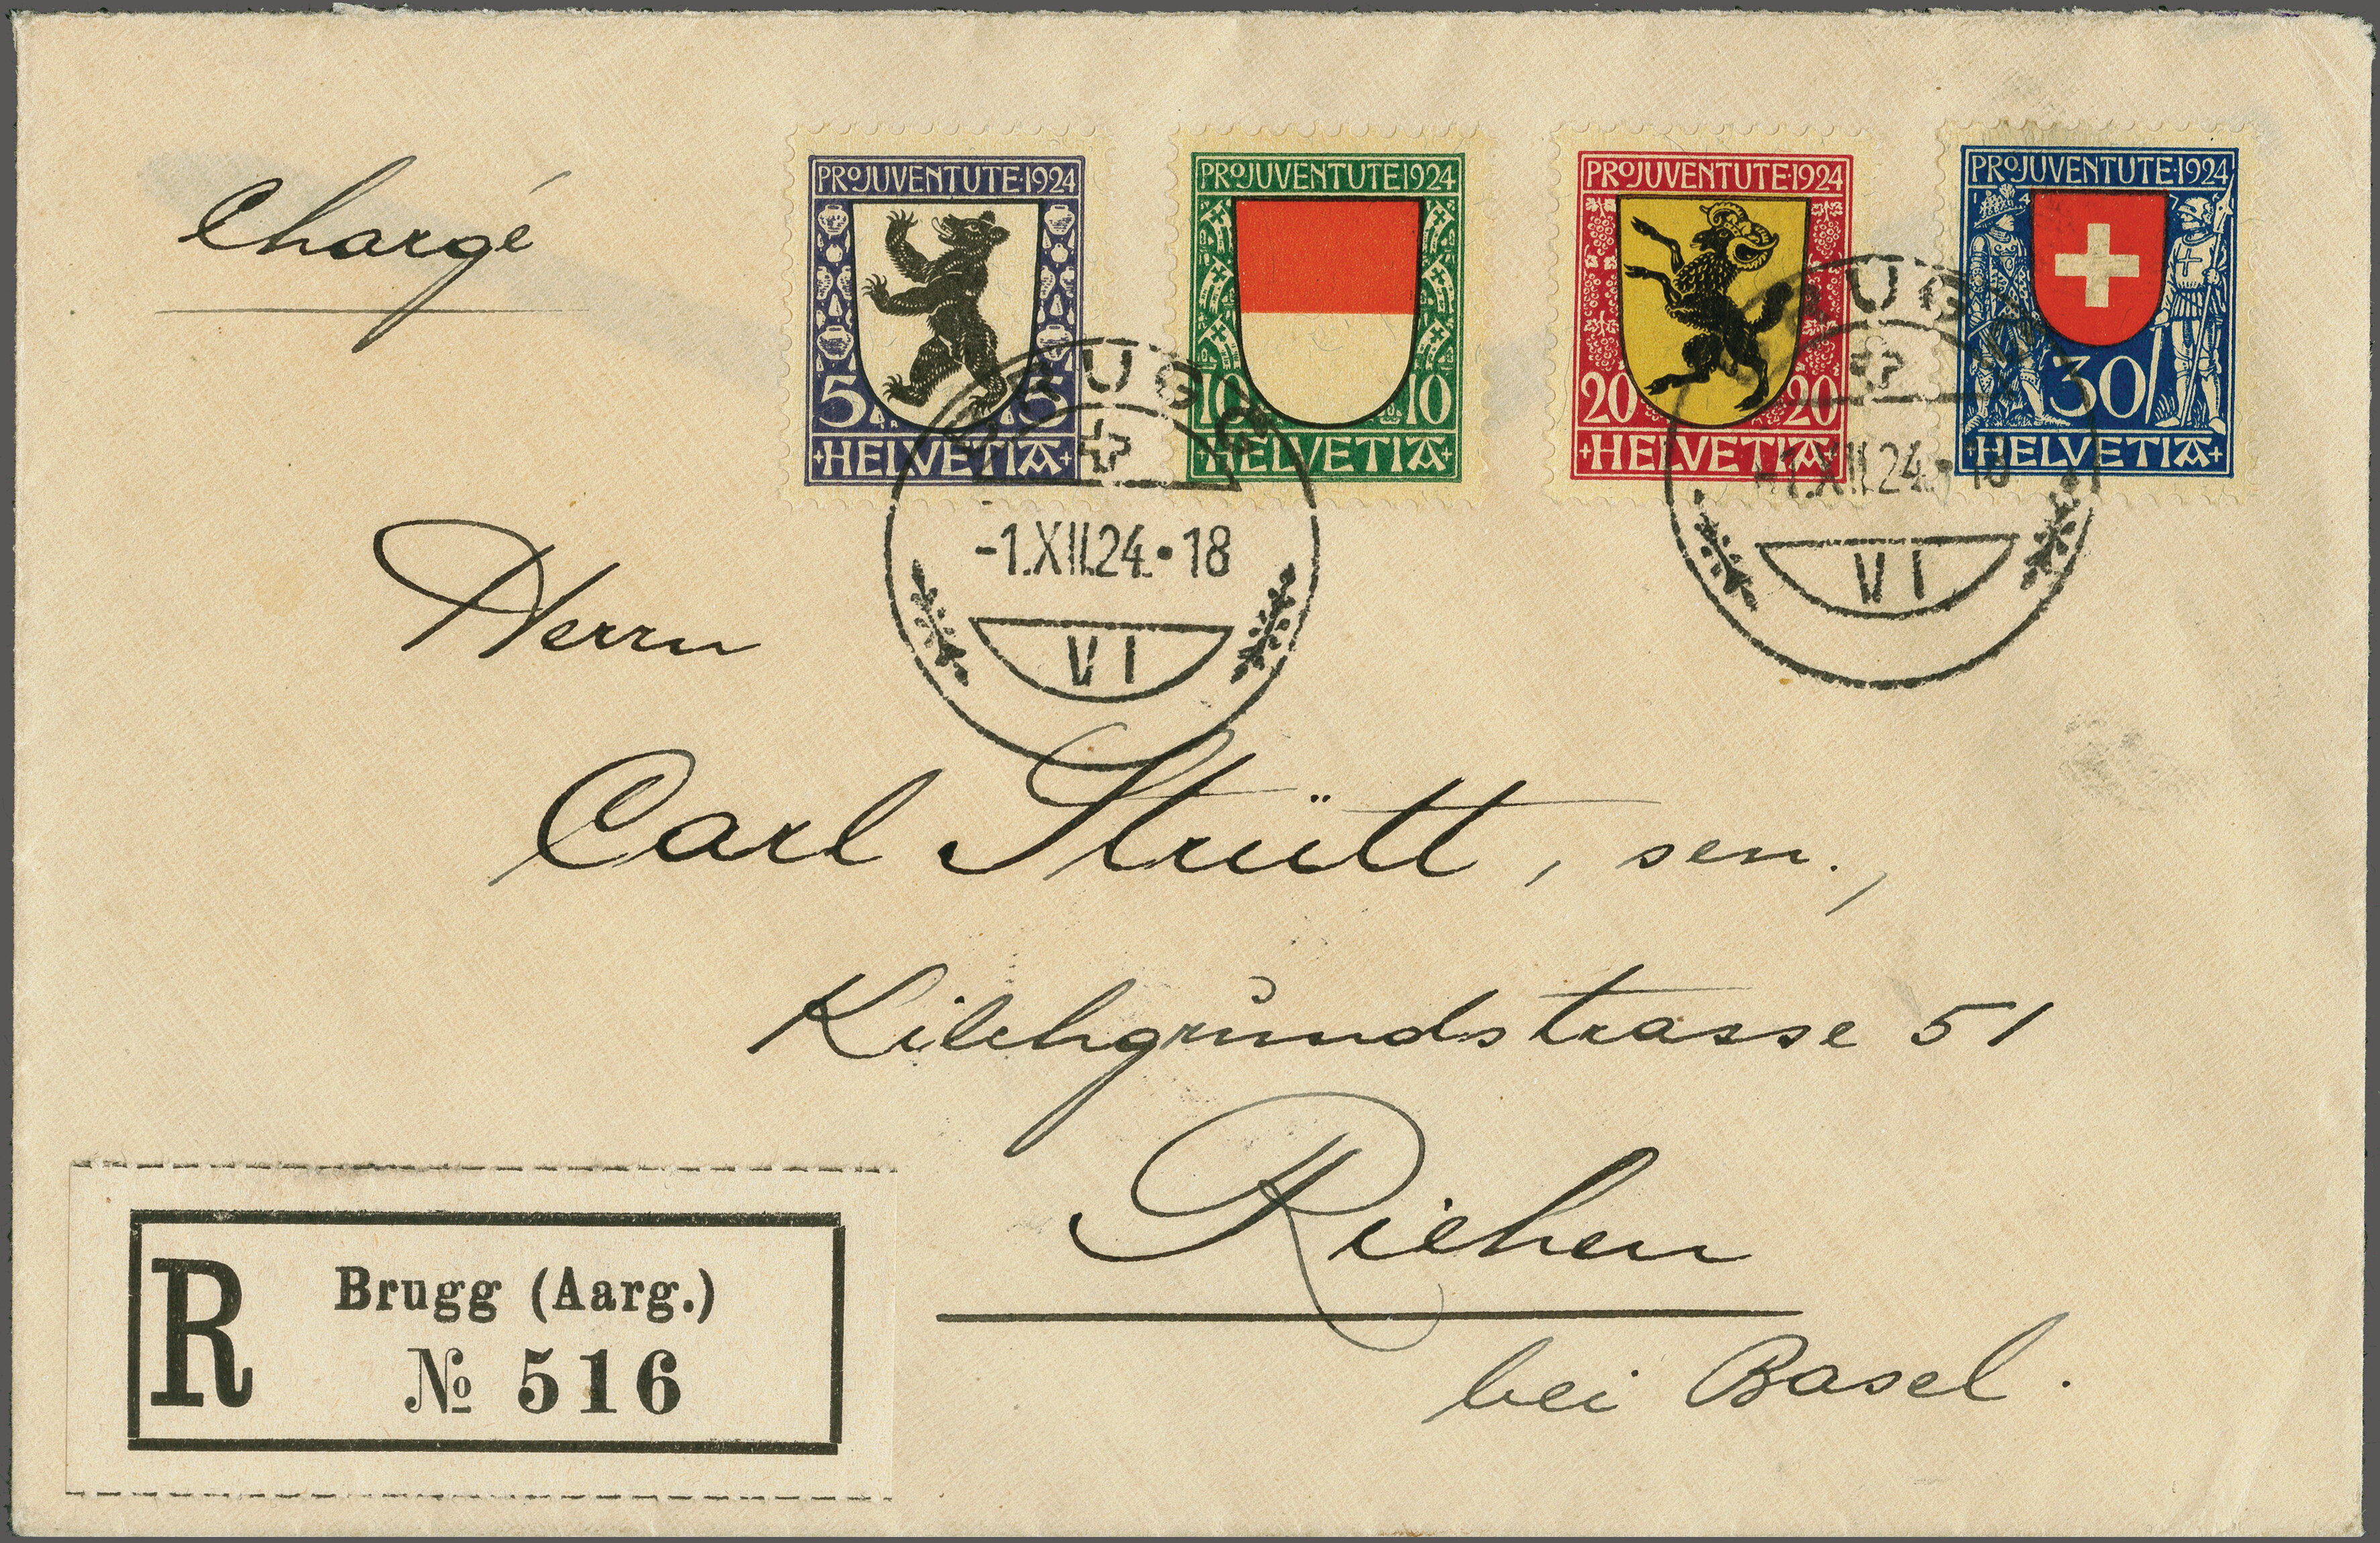 PRO JUVENTUTE·1924
5 5
+HELVETIA+
PRO JUVENTUTE 1924
10 10
+HELVETIA+
PRO JUVENTUTE·1924
20 20
+HELVETIA+
PRO JUVENTUTE·1924
30
+HELVETIA+
Chargé
BRUGG
-1.XII.24.·18
VI
BRUGG
-1.XII.24.·18
VI
Herrn
Carl Strütt, sen.,
Kilchgrundstrasse 51
Riehen
bei Basel.
R
Brugg (Aarg.)
№ 516